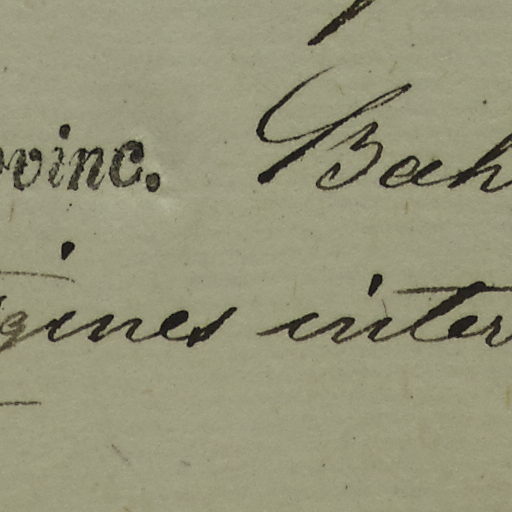 ovinc. Bah
gines inter